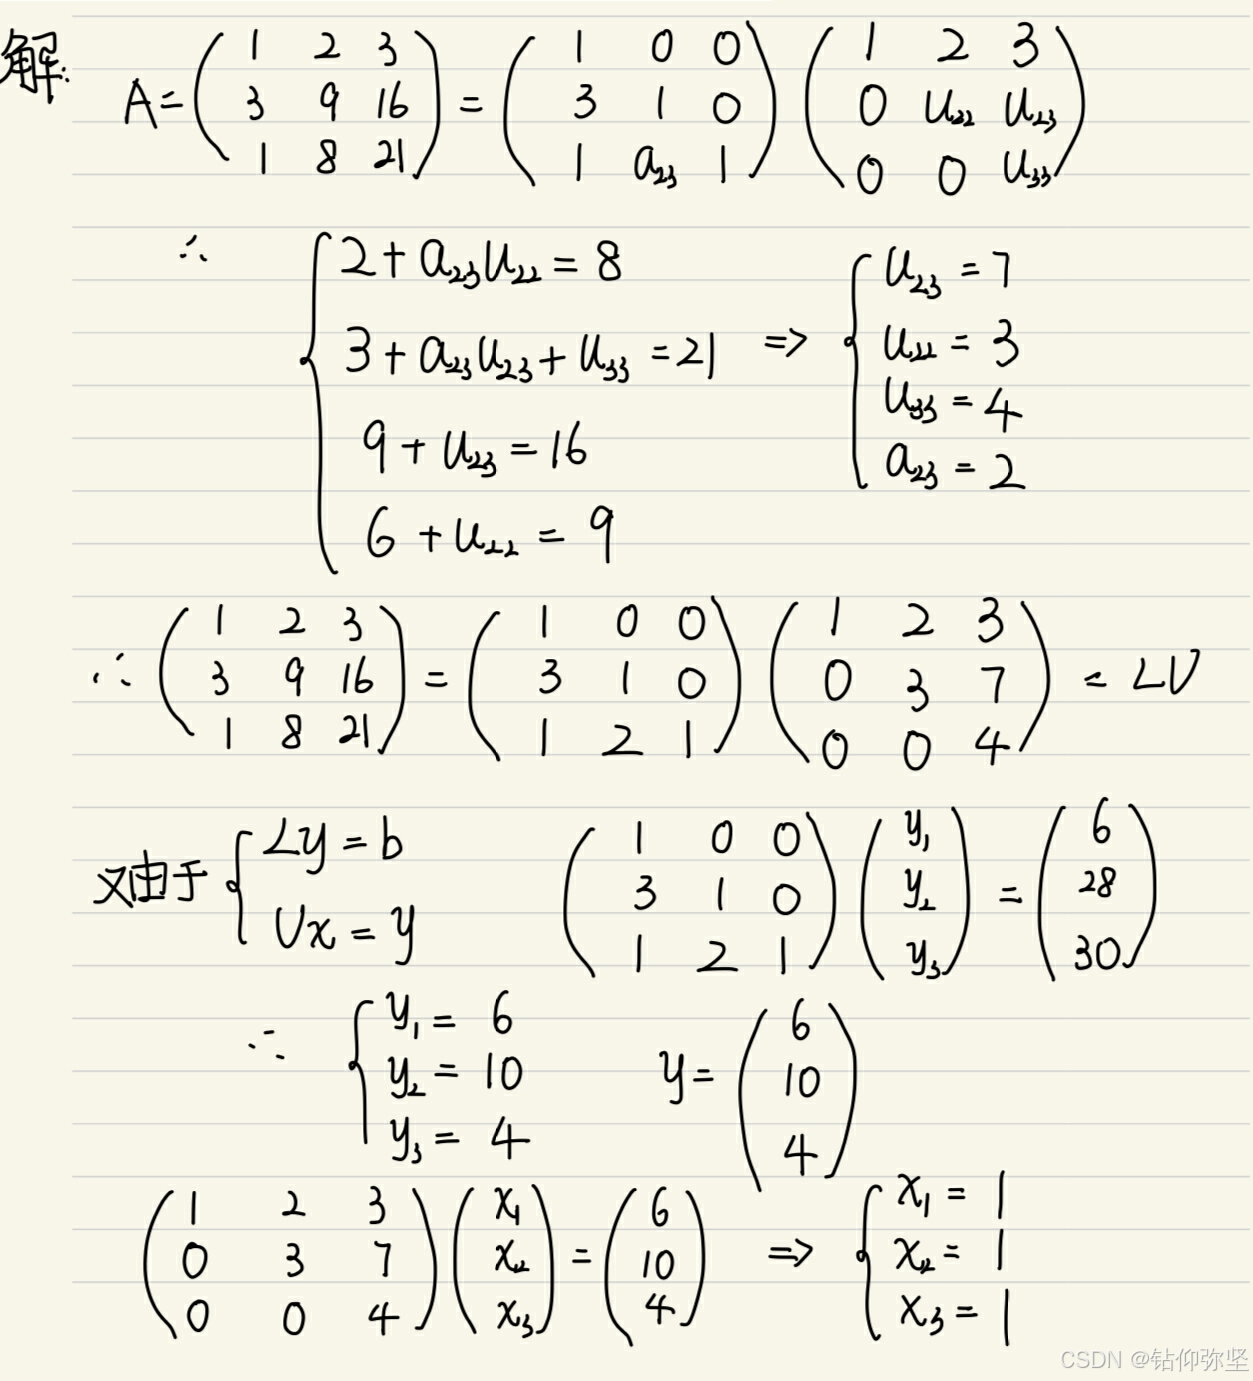 解: A = \begin{pmatrix} 1 & 2 & 3 \\ 3 & 9 & 16 \\ 1 & 8 & 21 \end{pmatrix} = \begin{pmatrix} 1 & 0 & 0 \\ 3 & 1 & 0 \\ 1 & a_{23} & 1 \end{pmatrix} \begin{pmatrix} 1 & 2 & 3 \\ 0 & u_{22} & u_{23} \\ 0 & 0 & u_{33} \end{pmatrix}
∴ \begin{cases} 2 + a_{23}u_{22} = 8 \\ 3 + a_{23}u_{23} + u_{33} = 21 \\ 9 + u_{23} = 16 \\ 6 + u_{22} = 9 \end{cases} ⇒ \begin{cases} u_{23} = 7 \\ u_{22} = 3 \\ u_{33} = 4 \\ a_{23} = 2 \end{cases}
∴ \begin{pmatrix} 1 & 2 & 3 \\ 3 & 9 & 16 \\ 1 & 8 & 21 \end{pmatrix} = \begin{pmatrix} 1 & 0 & 0 \\ 3 & 1 & 0 \\ 1 & 2 & 1 \end{pmatrix} \begin{pmatrix} 1 & 2 & 3 \\ 0 & 3 & 7 \\ 0 & 0 & 4 \end{pmatrix} = LU
又由于 \begin{cases} Ly = b \\ Ux = y \end{cases} \begin{pmatrix} 1 & 0 & 0 \\ 3 & 1 & 0 \\ 1 & 2 & 1 \end{pmatrix} \begin{pmatrix} y_1 \\ y_2 \\ y_3 \end{pmatrix} = \begin{pmatrix} 6 \\ 28 \\ 30 \end{pmatrix}
∴ \begin{cases} y_1 = 6 \\ y_2 = 10 \\ y_3 = 4 \end{cases} y = \begin{pmatrix} 6 \\ 10 \\ 4 \end{pmatrix}
\begin{pmatrix} 1 & 2 & 3 \\ 0 & 3 & 7 \\ 0 & 0 & 4 \end{pmatrix} \begin{pmatrix} x_1 \\ x_2 \\ x_3 \end{pmatrix} = \begin{pmatrix} 6 \\ 10 \\ 4 \end{pmatrix} ⇒ \begin{cases} x_1 = 1 \\ x_2 = 1 \\ x_3 = 1 \end{cases}
CSDN @钻仰弥坚